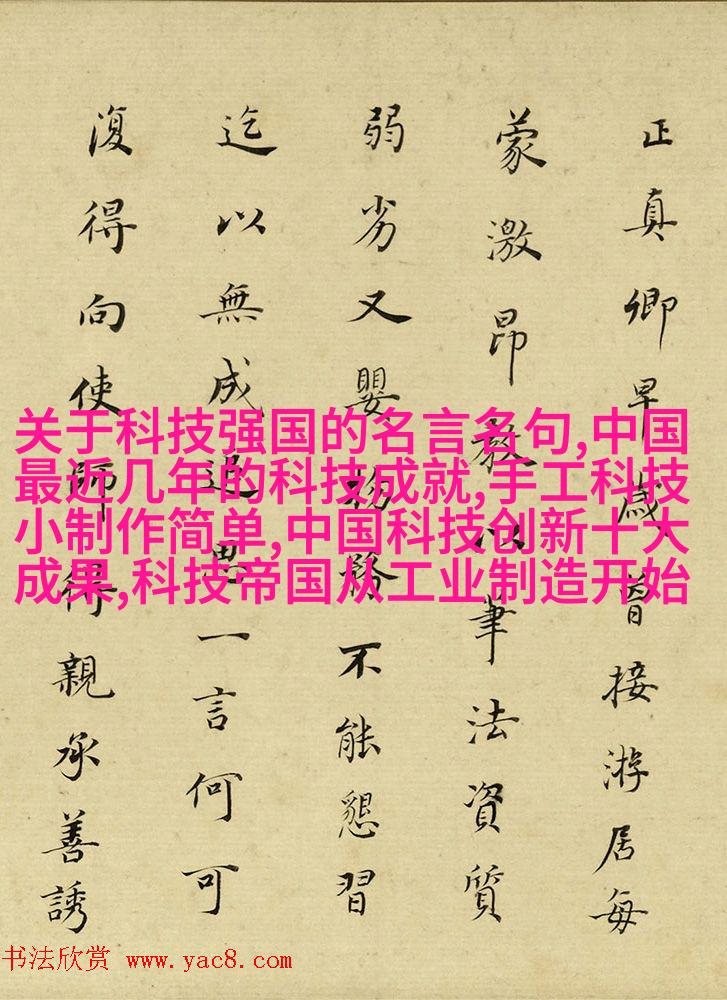 正真卿早歲嘗接游居每
蒙激昂教以筆法資質
弱劣又嬰物務不能懇習
迄以無成追思一言何可
復得向使師得親承善誘
关于科技强国的名言名句,中国
最近几年的科技成就,手工科技
小制作简单,中国科技创新十大
成果,科技帝国从工业制造开始
书法欣赏 www.yac8.com